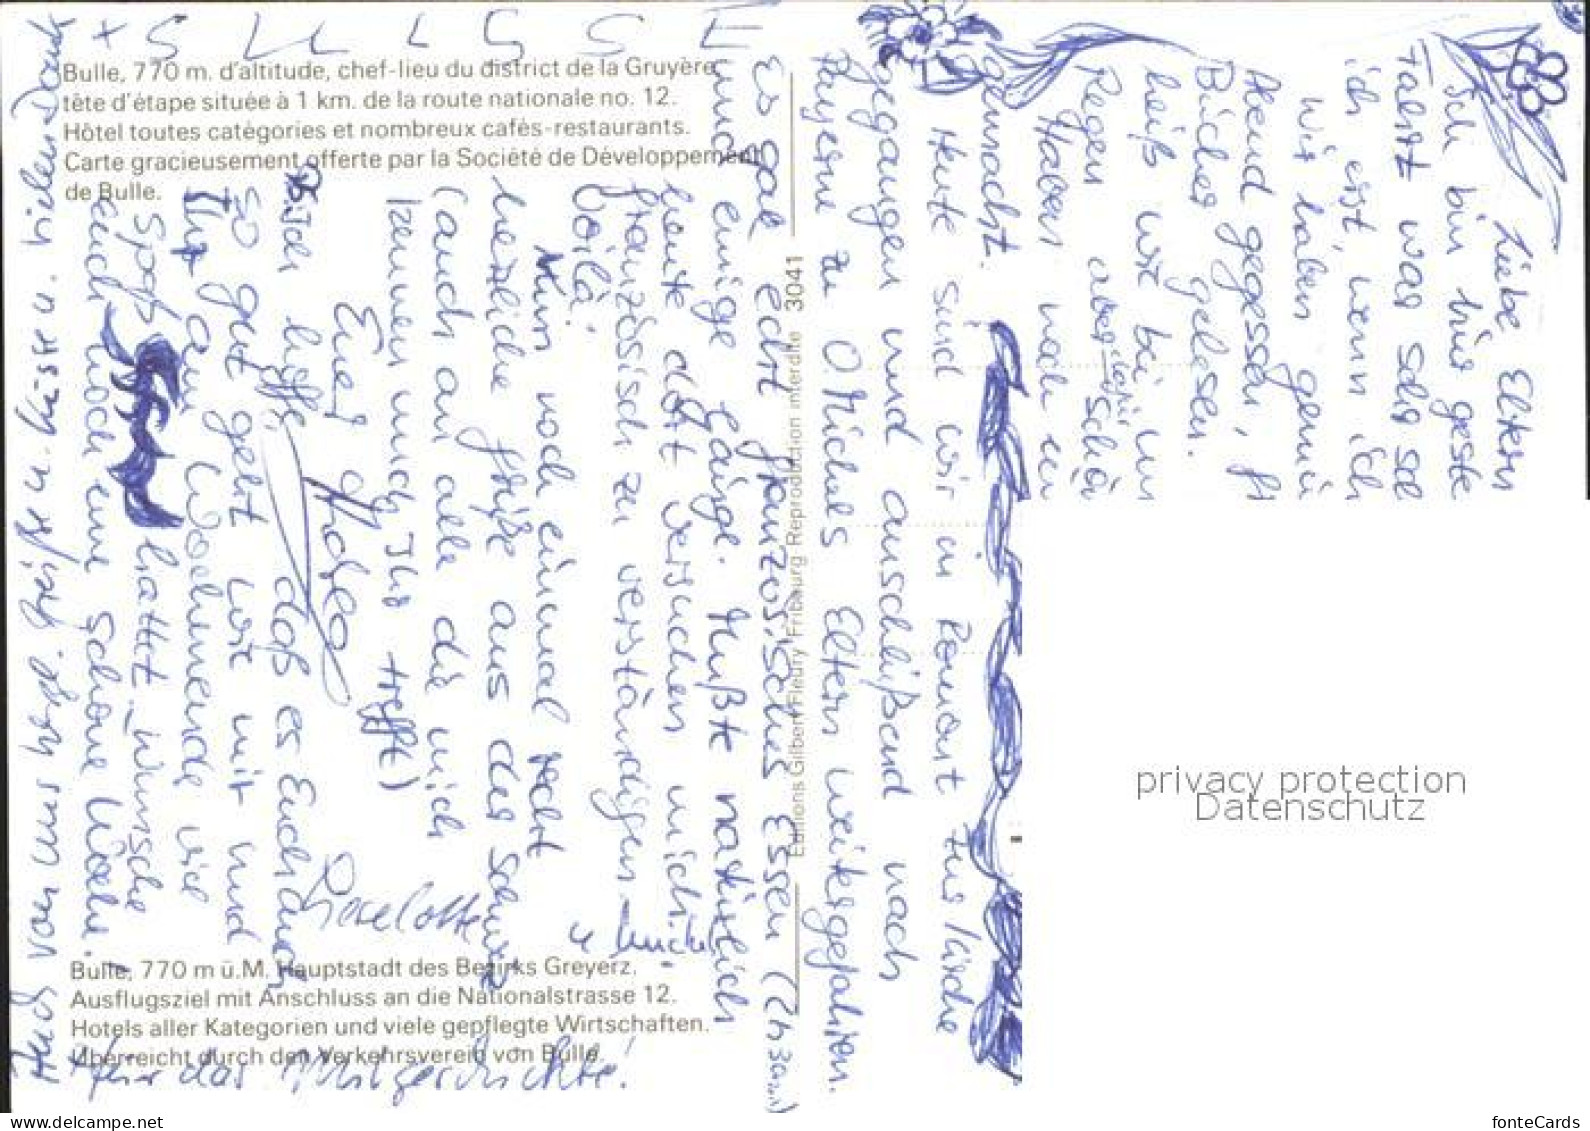 Bulle, 770 m. d'altitude, chef-lieu du district de la Gruyère,
tête d'étape située à 1 km. de la route nationale no. 12.
Hôtel toutes catégories et nombreux cafés-restaurants.
Carte gracieusement offerte par la Société de Développement
de Bulle.
Bulle, 770 m ü.M. Hauptstadt des Bezirks Greyerz.
Ausflugsziel mit Anschluss an die Nationalstrasse 12.
Hotels aller Kategorien und viele gepflegte Wirtschaften.
Überreicht durch den Verkehrsverein von Bulle.
Editions Gilbert Fleury Fribourg Reproduction interdite 3041
Liebe Eltern
Ich bin hier geste
Fahrt war sehr
ich erst, wenn ich
Wir haben
Abend gegessen,
Bücher gelesen.
heiß wie bei un
Regen aber schö
Haben noch
gemacht.
Heute sind wir in Romont zur Kirche
gegangen und anschlißend nach
Payerne zu O.Michels Eltern weitergefahren.
Es gab echt französisches Essen
und einige Gänge. Mußte natürlich
heute dort versuchen mich
französisch zu verständigen
Voilà.
Nun noch einmal recht
herzliche Grüße aus der Schweiz
(auch an alle die mich
kennen und Ihr trefft)
Eure
Ich hoffe, daß es Euch auch
so gut geht wie mir und
Ihr am Wochenende viel
Spaß hattet. Wünsche
euch noch eine schöne Woche.
Auch von uns her Grüße u. Küsse u. vielen Dank
für das
SUISSE
privacy protection
Datenschutz
www.delcampe.net
fonteCards